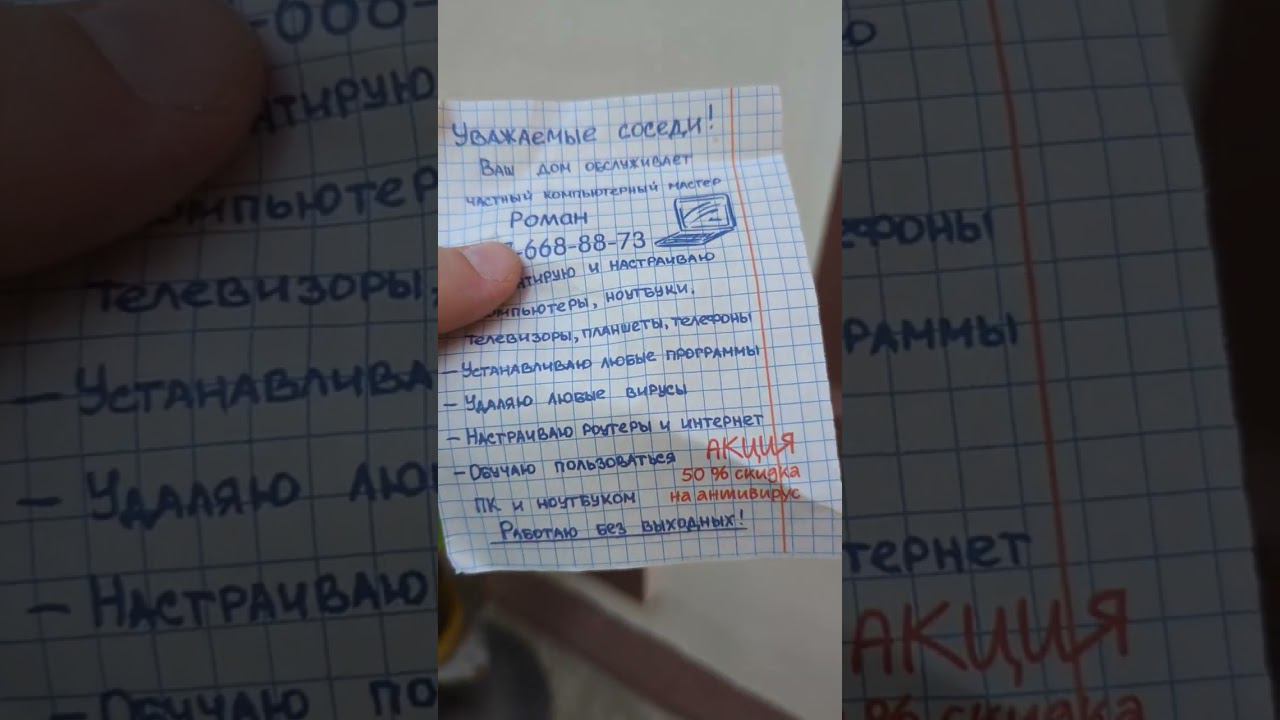 Уважаемые соседи!
Ваш дом обслуживает
частный компьютерный мастер
Роман
-668-88-73
и настраиваю
ноутбуки,
телевизоры, планшеты, телефоны
- Устанавливаю любые программы
- Удаляю любые вирусы
- Настраиваю роутеры и интернет
- Обучаю пользоваться
ПК и ноутбуком
АКЦИЯ
50 % скидка
на антивирус
Работаю без выходных!